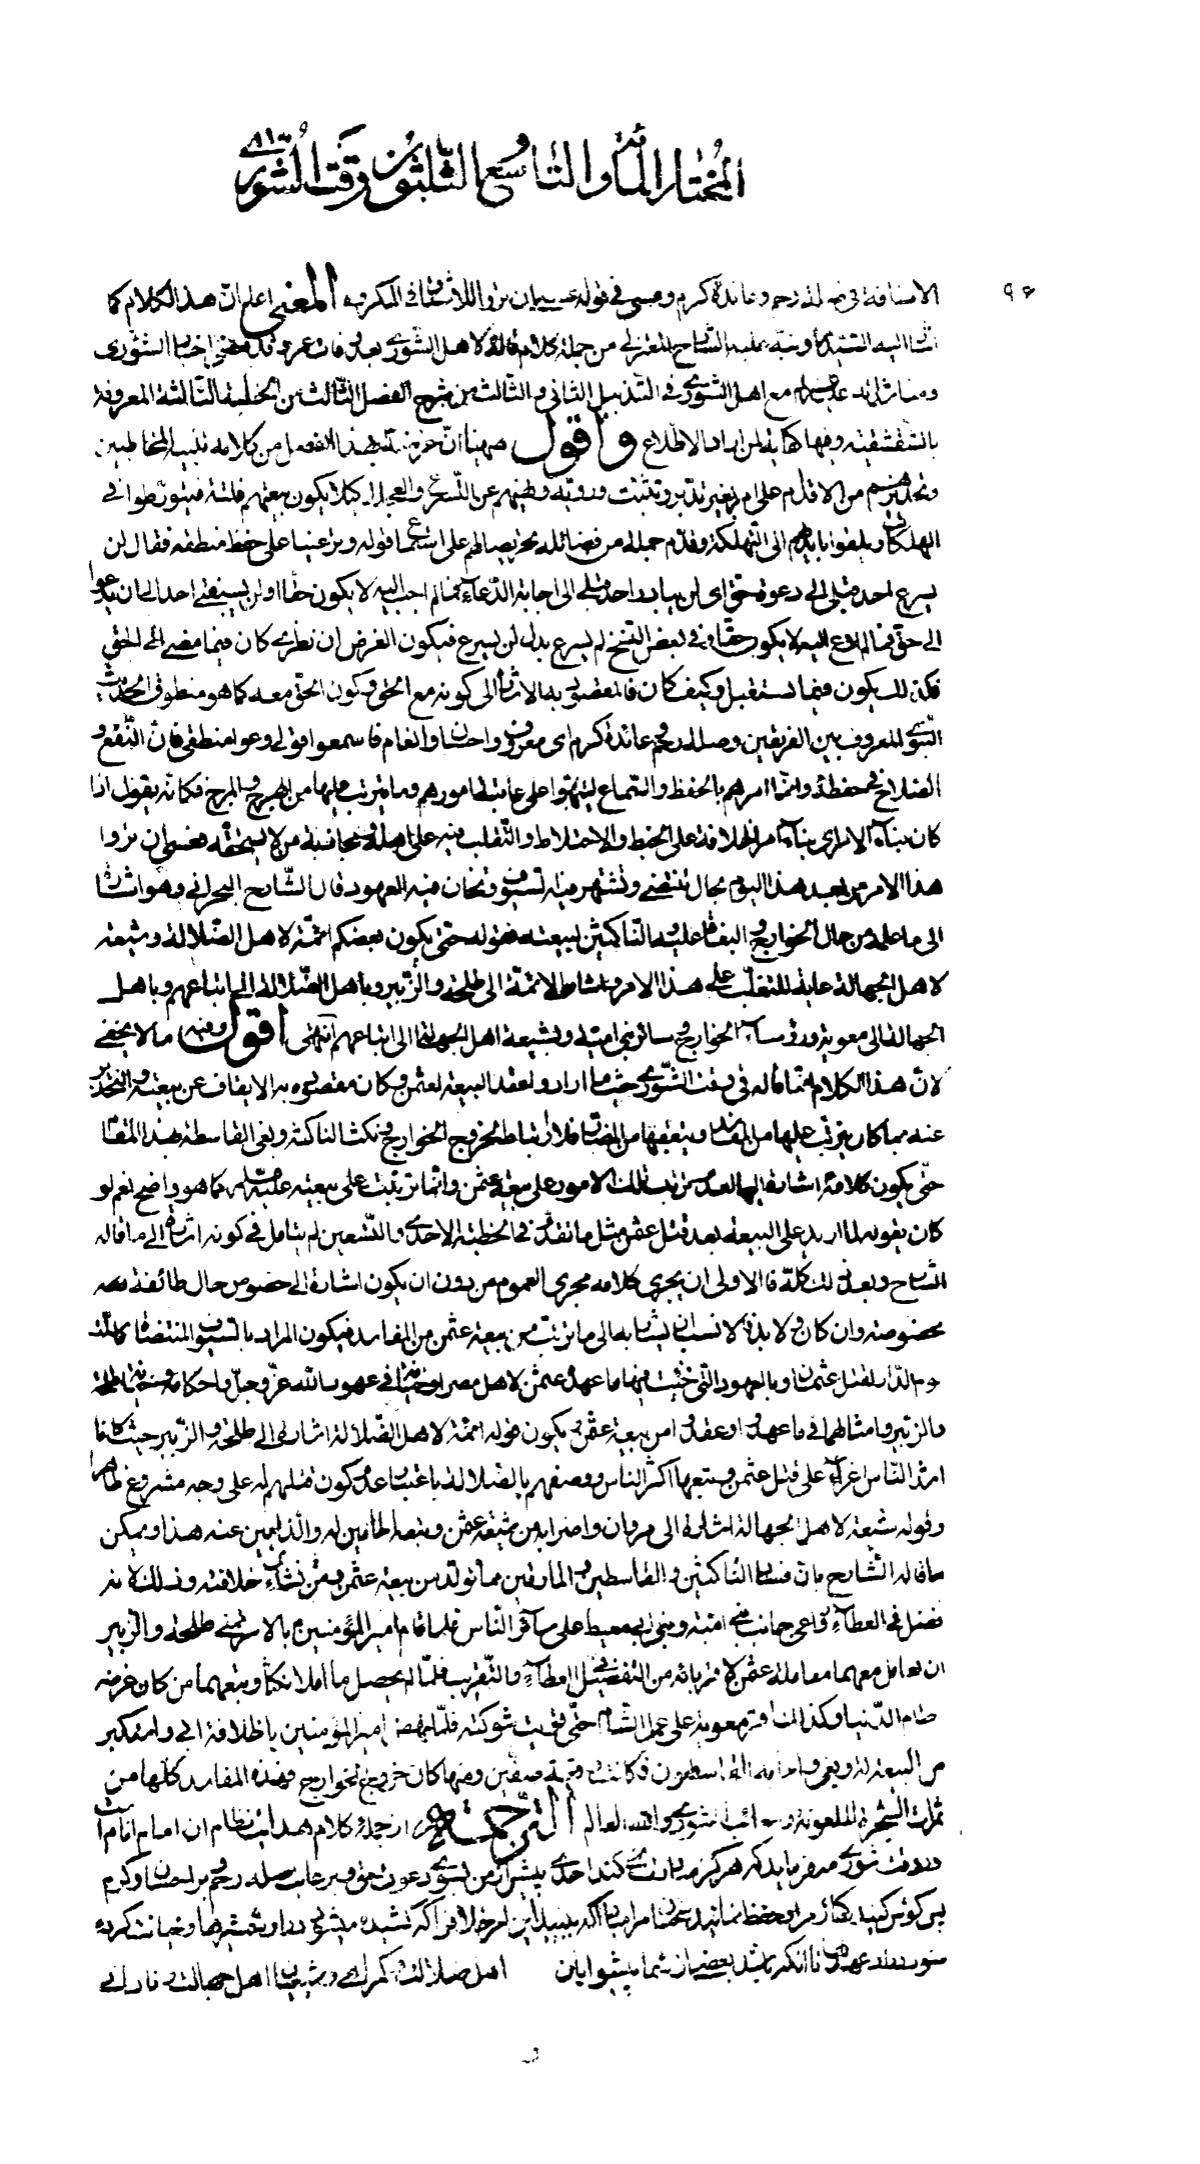 المختار المأة والتاسع والثلثون في وقت الشورى
۹۶
الاضافة في صلة رحم وعائدة كرم وعسى في قوله عسى ان تروا للاشفاق في المكروه المعنى اعلم انّ هذا الكلام كما
اشار اليه السيد ره ونبّه عليه الشارح المعتزلي من جملة كلام قاله لاهل الشورى بعد وفات عمر وقد مضى اخبار الشورى
ومناشداته عليه السلام مع اهل الشورى في التذييل الثاني والثالث من شرح الفصل الثالث من الخطبة الثالثة المعروفة
بالشقشقية وفيها كفاية لمن اراد الاطلاع واقول هيهنا انّ غرضه بهذا الفصل من كلامه تنبيه المخاطبين
وتحذيرهم من الاقدام على امر بغير تدبر وتثبت وروية ونهيهم عن التسرع والعجل لكيلا يكون بيعتهم فلتة فيتورطوا في
الهلكات ويلقوا بايديهم الى التهلكة وقدّم جملة من فضائله تحريصا لهم على استماع قوله وترغيبا على حفظ منطقه فقال لن
يسرع احد قبلي الى دعوة حق اي لن يبادر احد قبلي الى اجابة الدعاء فما لم اجب اليه لا يكون حقا او لن يسبقني احد الى ان يدعوا
الى حق فما لم ادع اليه لا يكون حقا وفي بعض النسخ لم يسرع بدل لن يسرع فيكون الغرض ان نظري كان فيما مضى الى الحق
فكذلك يكون فيما يستقبل وكيف كان فالمقصود به الاشارة الى كونه مع الحق وكون الحق معه كما هو منطوق الحديث
النبوي المعروف بين الفريقين وصلة رحم وعائدة كرم اي معروف واحسان وانعام فاسمعوا قولي وعوا منطقي فان النفع و
الصلاح في حفظه وانما امرهم بالحفظ والسماع لينبهوا على عاقبة امورهم وما يترتب عليها من الهرج والمرج فكانه يقول اذا
كان بناء الامر اي بناء امر الخلافة على الخبط والاختلاط والتقلب فيه على اهله ومجاذبة من لا يستحقه فعسى ان تروا
هذا الامر من بعد هذا اليوم بحال تنتضى وتشتهر فيه السيوف وتخان فيه العهود قال الشارح البحراني وهو اشارة
الى ما علمه من حال الخوارج والبغاة عليه والناكثين لبيعته فقوله حتى يكون بعضكم ائمة لاهل الضلالة وشيعة
لاهل الجهالة غاية للتغلب على هذا الامر واشار بالائمة الى طلحة والزبير وباهل الضلالة الى اتباعهم وباهل
الجهالة الى معوية ورؤساء الخوارج وسائر بني امية وبشيعة اهل الجهالة الى اتباعهم انتهى اقول وفيه ما لا يخفى
لانّ هذا الكلام انما قاله في وقت الشورى حيث ما ارادوا عقد البيعة لعثمن وكان مقصوده به الايقاف عن بيعته والتحذير
عنه بما كان يترتب عليها من المفاسد ويتعقبها من المضار فلا ارتباط لخروج الخوارج ونكث الناكثة وبغي القاسطة بهذا المقام
حتّى يكون كلامه اشارة اليها لعدم ترتب تلك الامور على بيعة عثمن وانما ترتبت على بيعته عليه السلام كما هو واضح نعم لو
كان يقوله لما اريد على البيعة بعد قتل عثمن مثل ما تقدم في الخطبة الاحدى والتسعين لم يتامل في كونه اشارة الى ما قاله
الشارح وبعد ذلك كلّه فالاولى ان يجري كلامه مجرى العموم من دون ان يكون اشارة الى خصوص حال طائفة
مخصوصة وان كان ولا بد فالانسب ان يشار به الى ما ترتب من بيعة عثمن من المفاسد فيكون المراد بالسيوف المنتضاة
يوم الدار لقتل عثمان وبالعهود التي خينت فيها ما عهده عثمن لاهل مصر او خيانته في عهود الله عزّ وجلّ واحكامه وخيانة طلحة
والزبير وامثالهما في ما عهدوه وعقدوه امر بيعة عثمن ويكون قوله ائمة لاهل الضلالة اشارة الى طلحة والزبير حيث كانا
اشد الناس اغراء على قتل عثمن وتبعهما اكثر الناس ووصفهم بالضلالة باعتبار عدم كون قتلهم له على وجه مشروع ظاهرا
وقوله شيعة لاهل الجهالة اشارة الى مروان واضرابه من شيعة عثمن وتبعه الحامين له والذابين عنه هذا ويمكن
ما قاله الشارح بان فساد الناكثين والقاسطين والمارقين مما تولد من بيعة عثمن ومن نشأ خلافته وذلك لانه
فضل في العطاء وراعى جانب بني امية وبني ابي معيط على سائر الناس فلما قام امير المؤمنين بالامر تمنى طلحة والزبير
ان يعامل معهما معاملة عثمن لاقربائه من التفضيل في العطاء والتقريب فلمّا لم يحصل ما املا نكثا وتبعهما من كان غرضه
حطام الدنيا وكذلك اقر معوية على عمل الشام حتّى قويت شوكته فلمّا نهض امير المؤمنين بالخلافة ابى واستكبر
من البيعة له وبغى واجابه القاسطون فكانت وقعة صفين ومنها كان خروج الخوارج فهذه المفاسد كلها من
ثمرات الشجرة الملعونة وشوائب الشورى والله العالم الترجمة از جملة كلام هدايت نظام ان امام انام است
در وقت شورى ميفرمايد كه هرگز مبادرت نمى كند احدى پيش از من بسوى دعوت حق وبرعايت صله رحم وبر احسان وكرم
پس گوش كنيد گفتار مرا وحفظ نمائيد سخنان مرا مبادا كه ببينيد اين امر خلافت را كه كشيده ميشود در او شمشيرها وخيانت كرده
شود در او عهدها تا آنكه باشند بعضى از شما پيشوايان اهل ضلالت وگمراهى وشيعيان اهل جهالت ونادانى